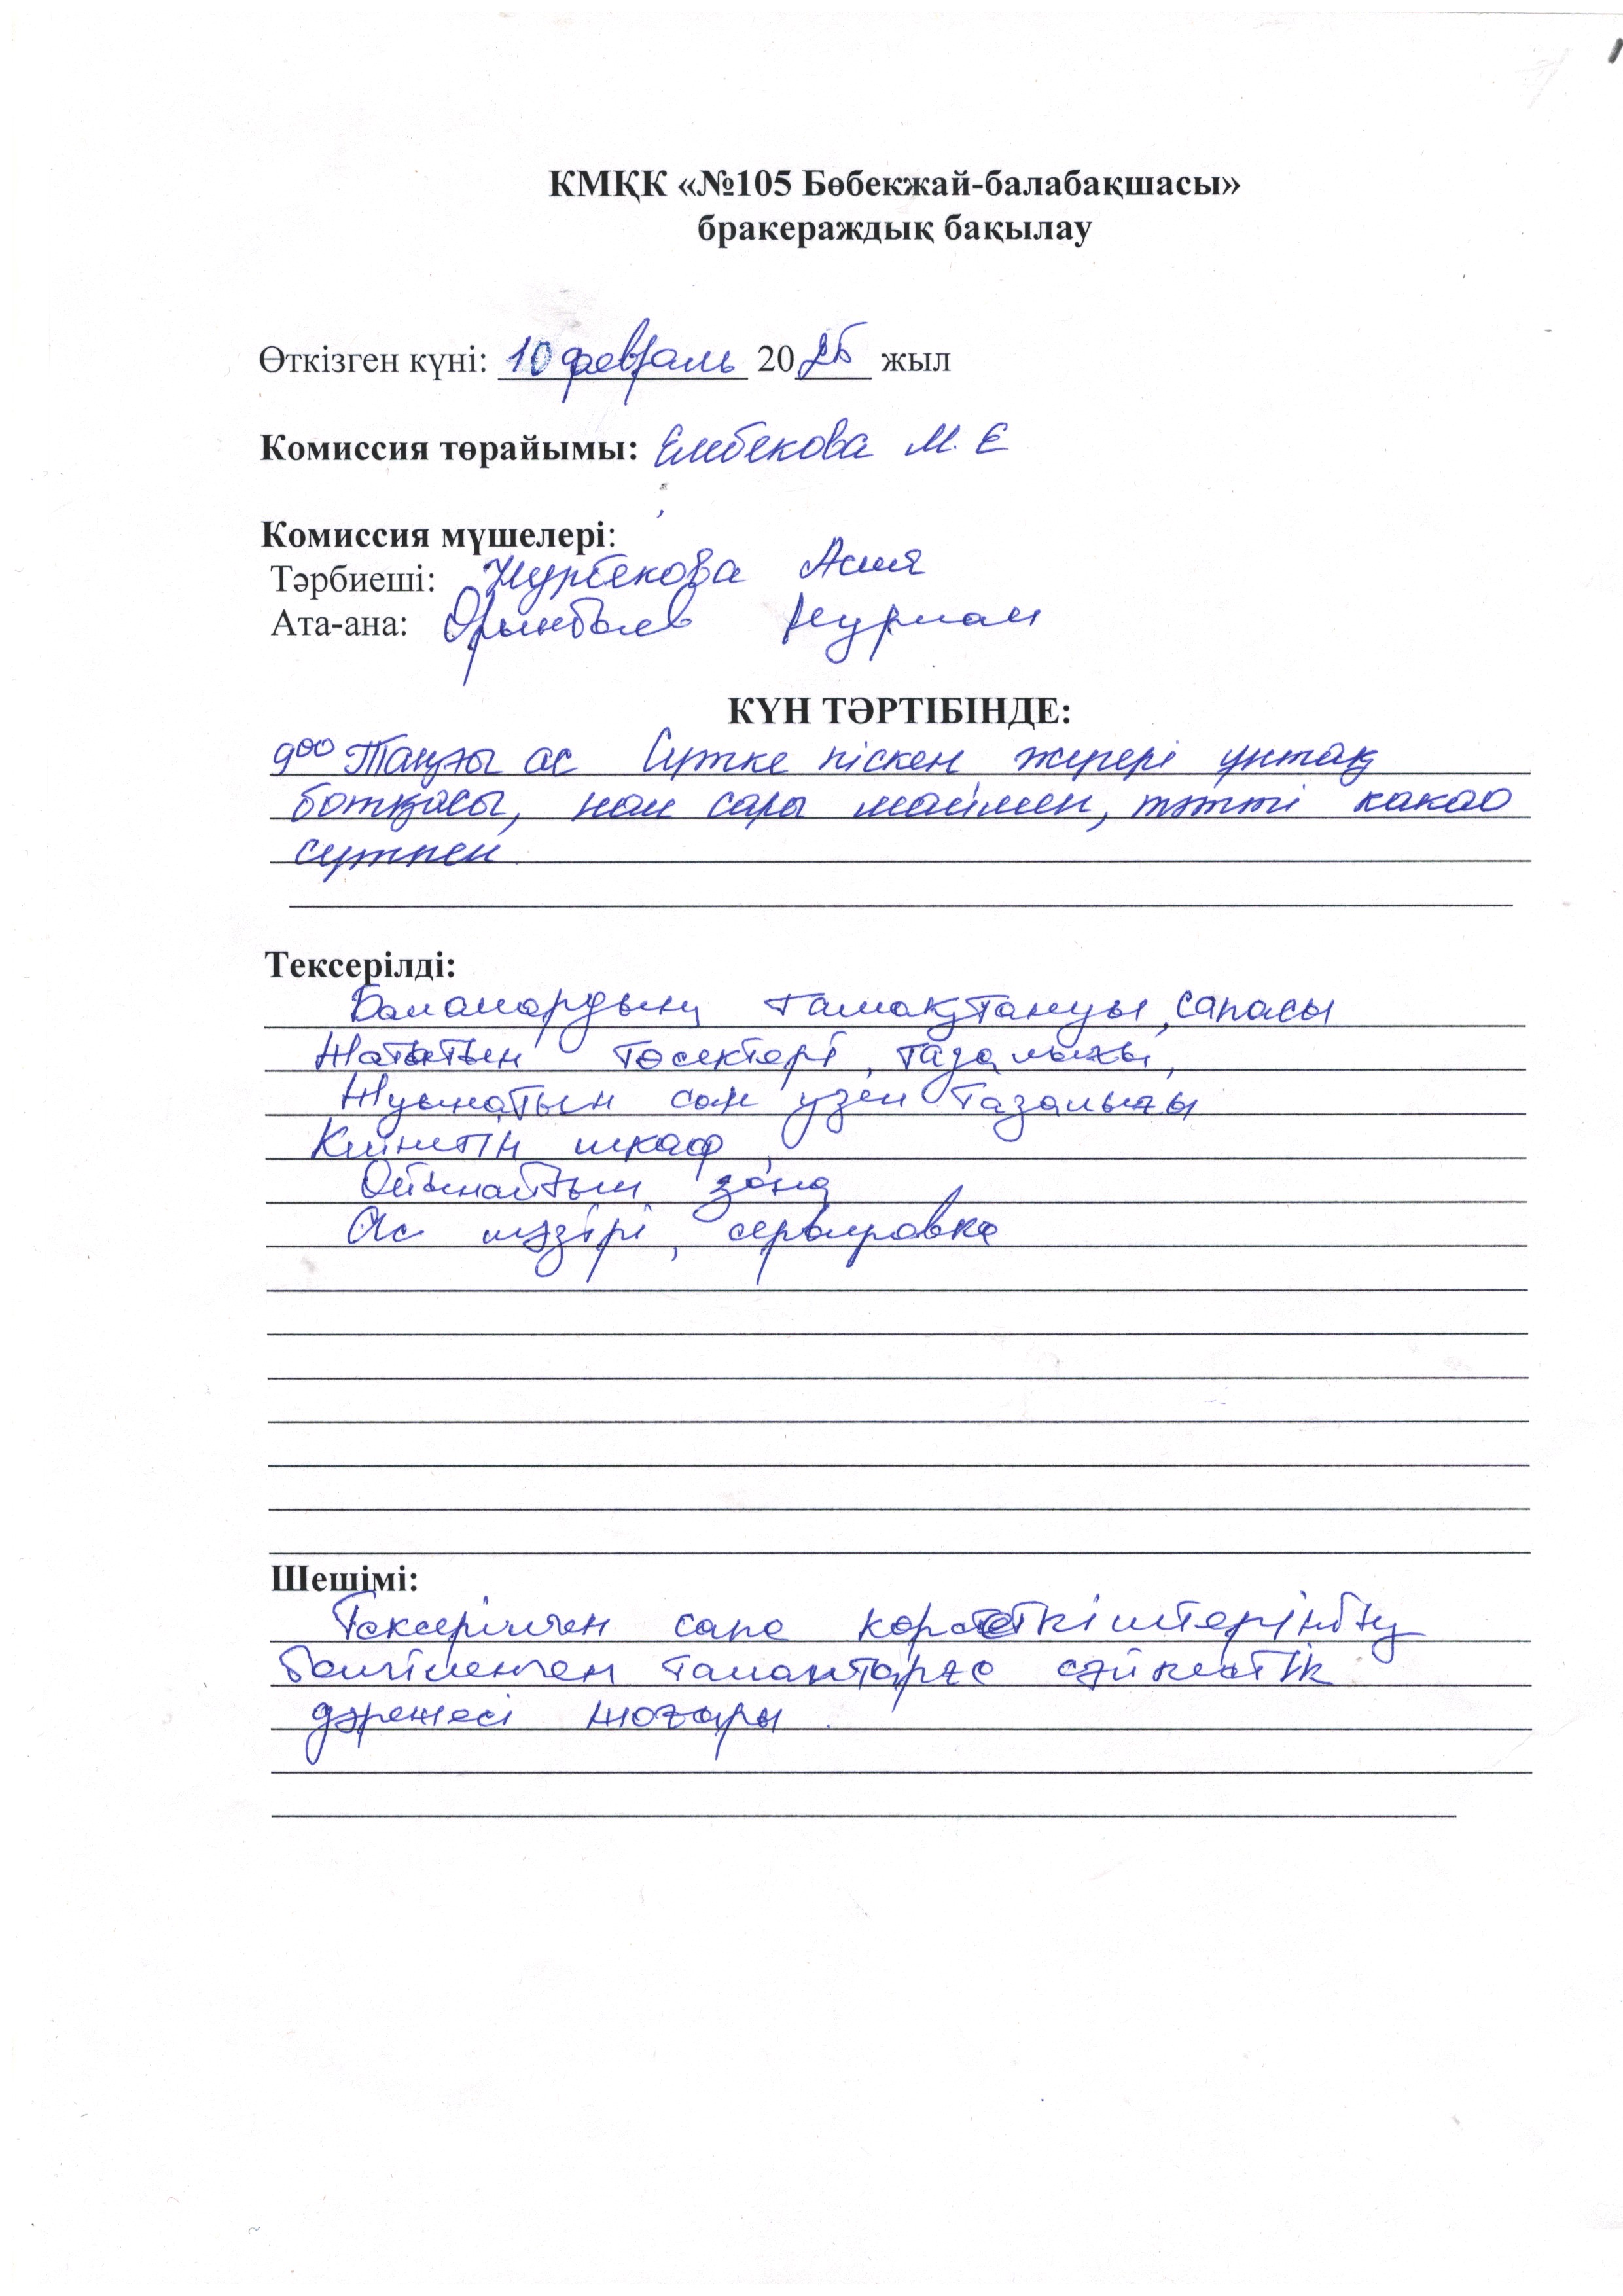 КМҚК «№105 Бөбекжай-балабақшасы»
бракераждық бақылау
Өткізген күні: 10 февраль 2025 жыл
Комиссия төрайымы: Елибекова М. Е
Комиссия мүшелері:
Тәрбиеші: Нурбекова Асия
Ата-ана: Орынбаев
КҮН ТӘРТІБІНДЕ:
9⁰⁰ Таңғы ас Сүтке піскен жүгері ұнтақ
ботқасы, нан сары маймен, тәтті какао
сүтпен.
Тексерілді:
Балалардың тамақтануы, сапасы
Жататын төсектері, тазалығы,
Жуынатын сан узел тазалығы
Киінетін шкаф
Ойынайтын зона
Ас мәзірі, сервировка
Шешімі:
Тексерілген сапа көрсеткіштерінің
белгіленген талаптарға сәйкестік
дәрежесі жоғары.